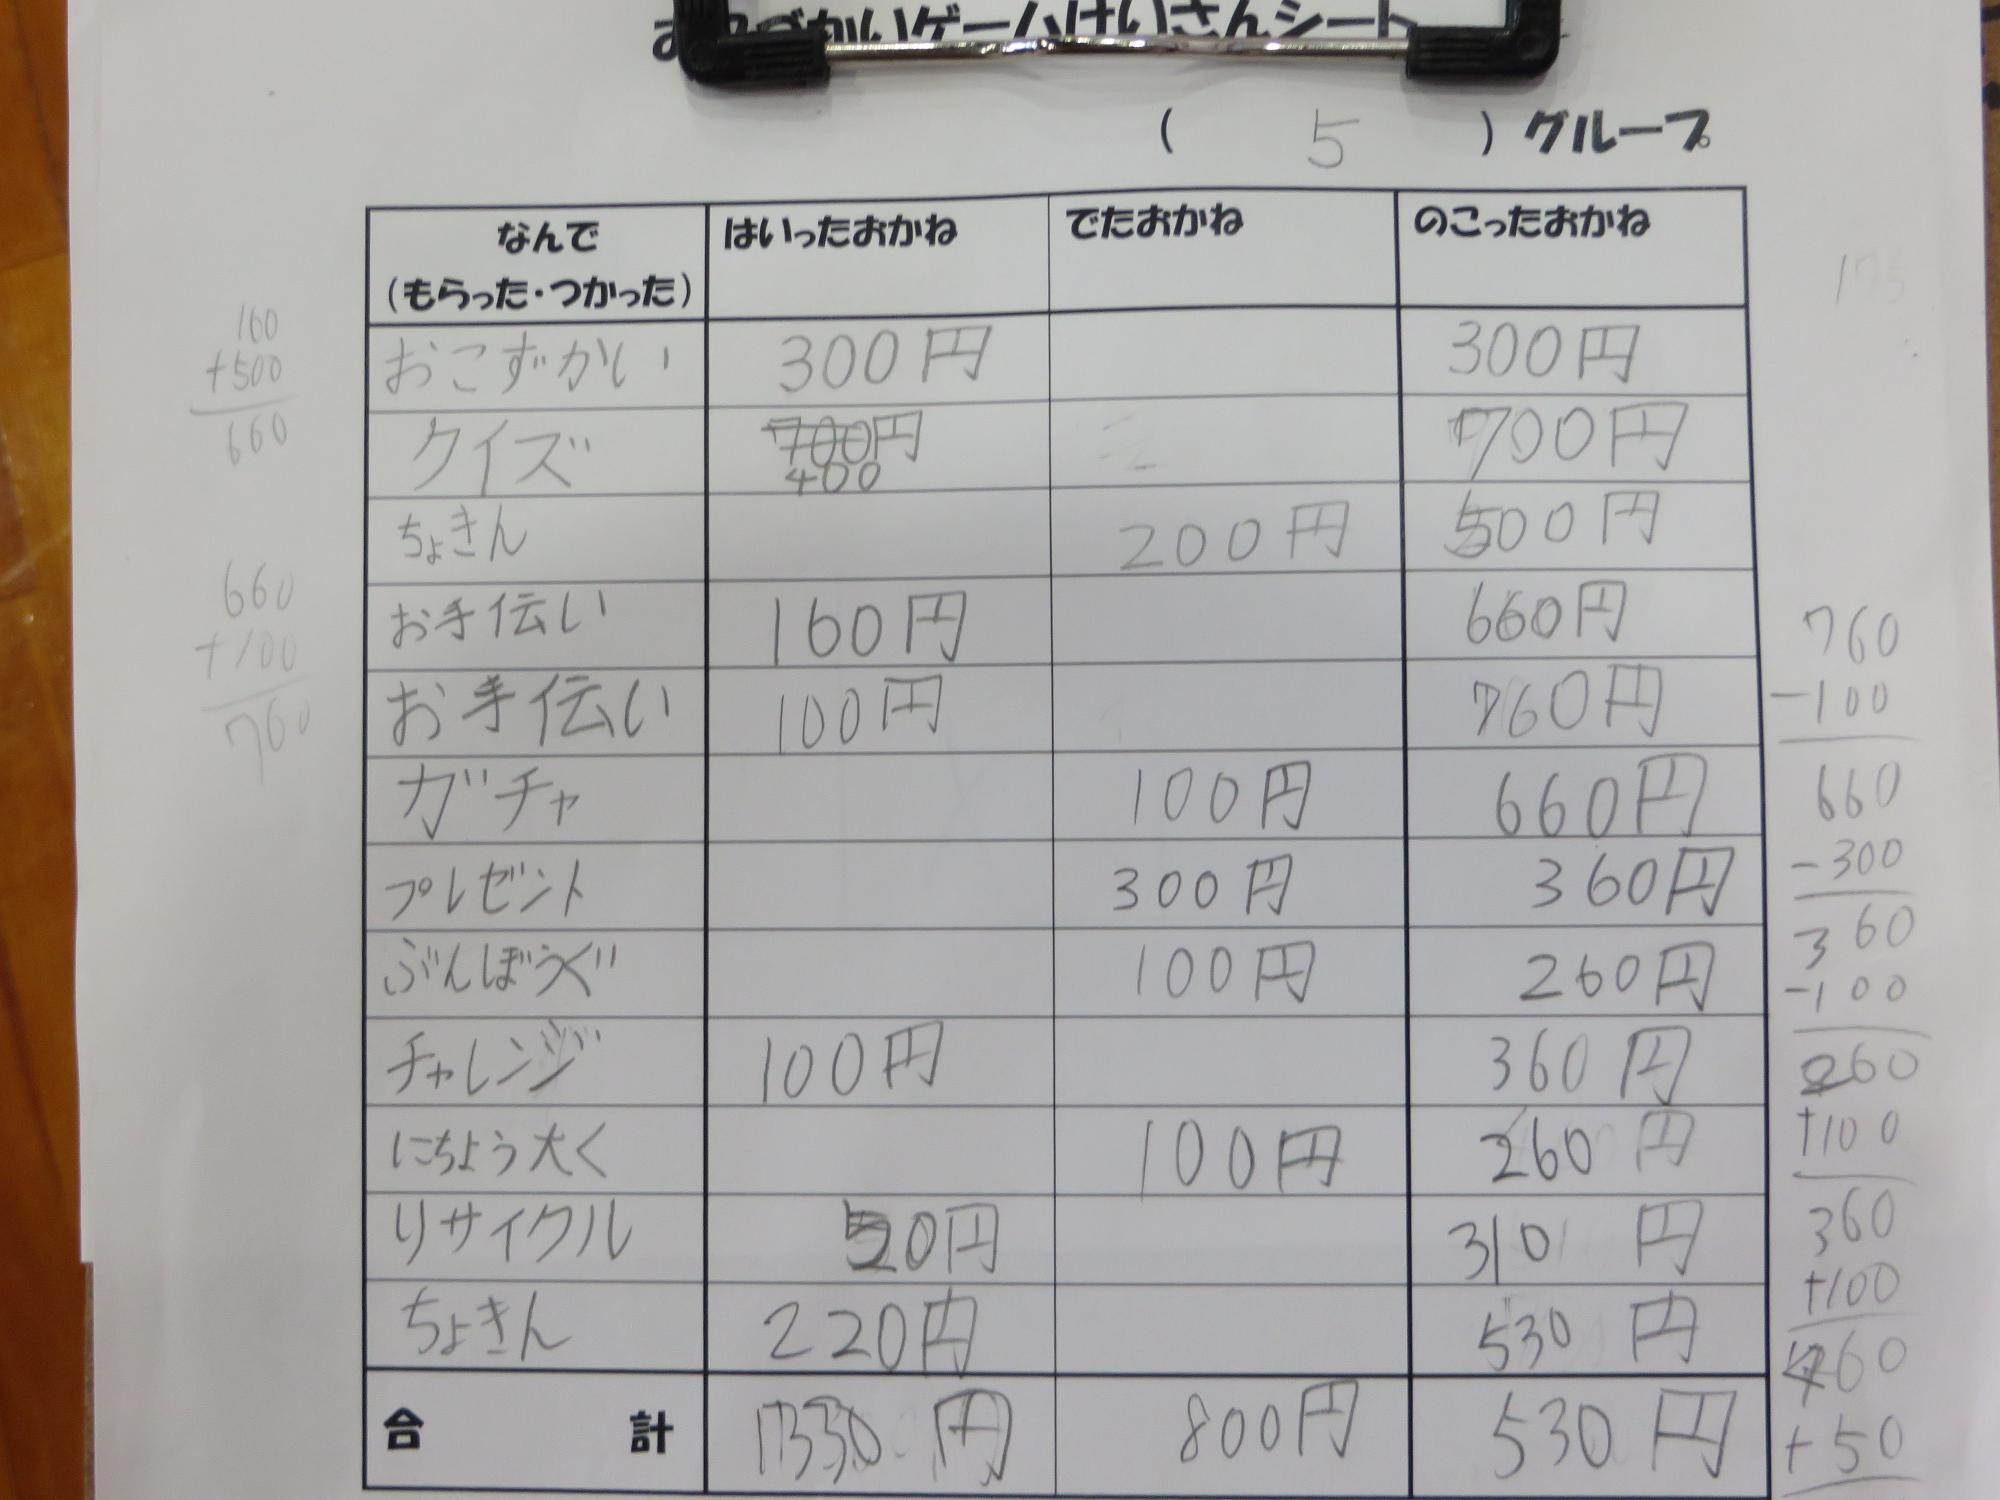 おこづかいゲームけいさんシート
( 5 ) グループ
なんで
(もらった・つかった)
はいったおかね
でたおかね
のこったおかね
おこずかい 300円 300円
クイズ 700円 400 700円
ちょきん 200円 500円
お手伝い 160円 660円
お手伝い 100円 760円
ガチャ 100円 660円
プレゼント 300円 360円
ぶんぼうぐ 100円 260円
チャレンジ 100円 360円
にちょう大く 100円 260円
リサイクル 50円 310円
ちょきん 220円 530円
合計 1330円 800円 530円
160
+500
660
660
+100
760
760
-100
660
-300
360
-100
260
+100
360
+100
460
+50